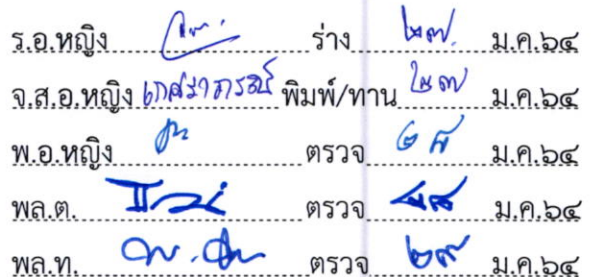 ร.อ.หญิง ร่าง ๒๗ ม.ค.๖๔
จ.ส.อ.หญิง เกศราภรณ์ พิมพ์/ทาน ๒๗ ม.ค.๖๔
พ.อ.หญิง ตรวจ ๒๘ ม.ค.๖๔
พล.ต. ตรวจ ๒๘ ม.ค.๖๔
พล.ท. ตรวจ ม.ค.๖๔